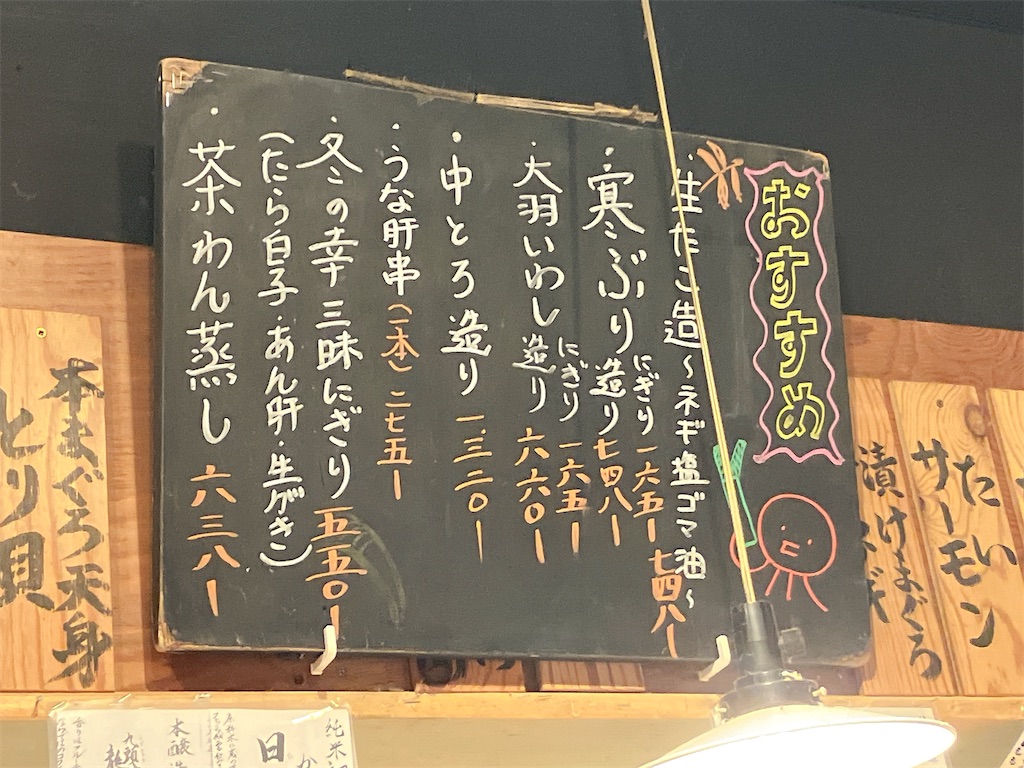 おすすめ
・生たこ造〜ネギ塩ゴマ油〜 七四八ー
・寒ぶり造り七四八ー
にぎり一六五ー
・大羽いわし造り六六〇ー
にぎり一六五ー
・中とろ造り一、三二〇ー
・うな肝串(一本)二七五ー
・冬の幸三昧にぎり五五〇ー
(たら白子・あん肝・生がき)
・茶わん蒸し六三八ー
たい
サーモン
漬けまぐろ
本まぐろ天身
とり貝
純米
日
本醸
九頭龍